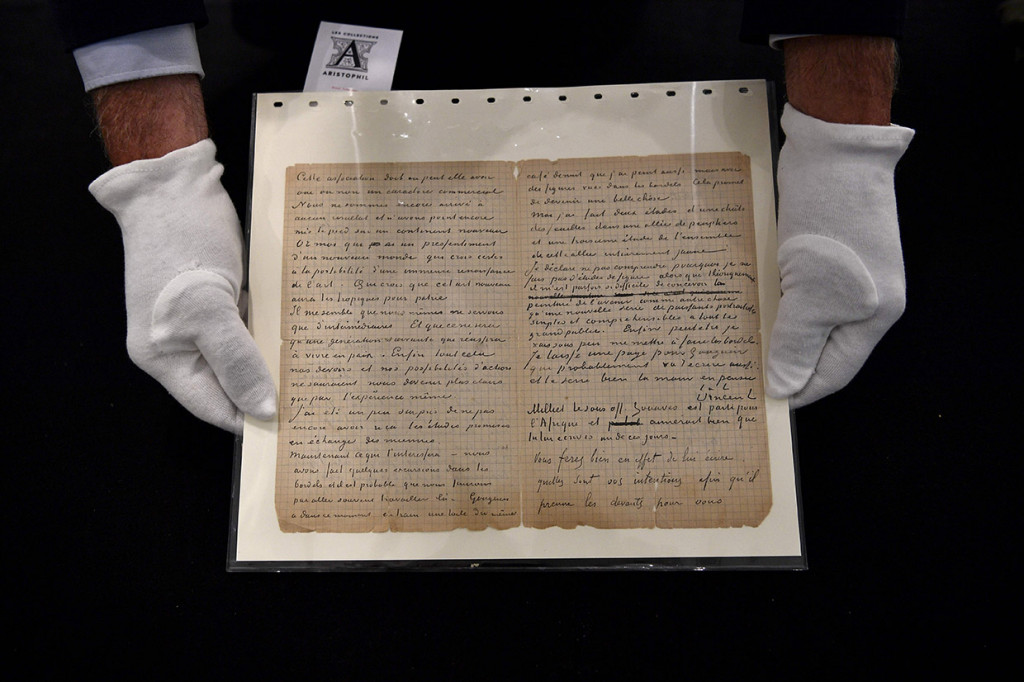 LES COLLECTIONS
A
ARISTOPHIL
Cette association dont on peut elle avoir
oui ou non un caractère commercial
Nous ne sommes encore arrivé à
aucun resultat et n'avons point encore
mis le pied sur un continent nouveau
Or moi que ai un pressentiment
d'un nouveau monde qui crois certes
à la possibilité d'une immense renaissance
de l'art. Qui crois que cet art nouveau
aura les tropiques pour patrie
Il me semble que nous mêmes ne servons
que d'intermédiaires. Et que ce ne sera
qu'une génération suivante qui réussira
à vivre en paix. Enfin tout cela
nos devoirs et nos possibilités d'action
ne sauraient nous devenir plus claires
que par l'expérience même.
J'ai été un peu surpris de ne pas
encore avoir reçu les études promises
en échange des miennes.
Maintenant ce que t'interessera – nous
avons fait quelques excursions dans les
bordels et il est probable que nous finirons
par aller souvent travailler là. Gauguin
a dans ce moment en train une toile du même
café de nuit que j'ai peint aussi mais avec
des figures vues dans les bordels. Cela promet
de devenir une belle chose
moi j'ai fait deux études d'une chûte
des feuilles dans une allée de peupliers
et une troisieme étude de l'ensemble
de cette allée entièrement jaune
Je déclare ne pas comprendre pourquoi je ne
fais pas d'études de figure alors que théoriquement
il m'est parfois si difficile de concevoir la
peinture de l'avenir comme autre chose
qu'une nouvelle série de puissants portraitistes
simples et compréhensibles à tout le
grand public. Enfin peut être je
vais sous peu me mettre à faire les bordels.
Je laisse une page pour Gauguin
que probablement va t'écrire aussi
et te serre bien la main en pensée
t. à t.
Vincent
Milliet le sous off. Zouaves est parti pour
l'Afrique et aimerait bien que
tu lui écrives un de ces jours –
Vous ferez bien en effet de lui écrire
quelles sont vos intentions afin qu'il
prenne les devants pour vous